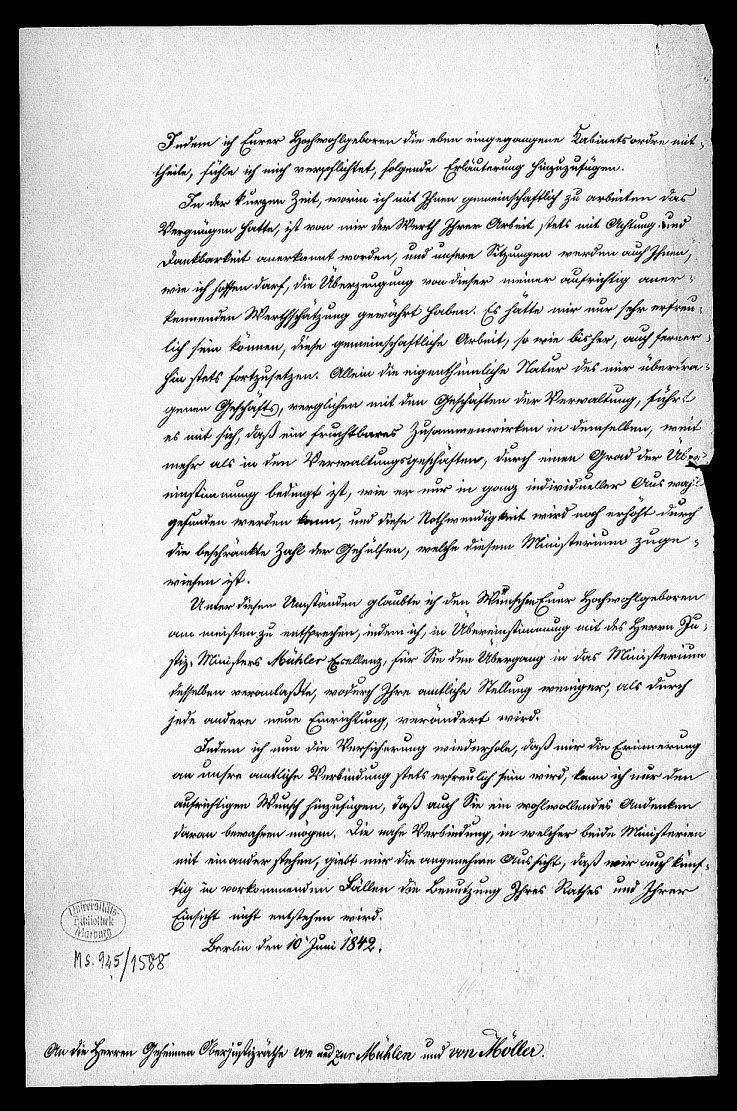 Indem ich Eurer Hochwohlgeboren die eben eingegangene Kabinetsordre mit-
theile, fühle ich mich verpflichtet, folgende Erläuterung hinzuzufügen.
In der kurzen Zeit, worin ich mit Ihnen gemeinschaftlich zu arbeiten das
Vergnügen hatte, ist von mir der Werth Ihrer Arbeit stets mit Achtung und
Dankbarkeit anerkannt worden, und unsere Sitzungen werden auch Ihnen,
wie ich hoffen darf, die Überzeugung von dieser meiner aufrichtig aner-
kennenden Werthschätzung gewährt haben. Es hätte mir nur sehr erfreu-
lich sein können, diese gemeinschaftliche Arbeit, so wie bisher, auch ferner-
hin stets fortzusetzen. Allein die eigenthümliche Natur des mir übertra-
genen Geschäfts, verglichen mit den Geschäften der Verwaltung, führt
es mit sich, daß ein fruchtbares Zusammenwirken in demselben, weit
mehr als in den Verwaltungsgeschäften, durch einen Grad der Über-
einstimmung bedingt ist, wie er nur in ganz individueller Auswahl
gefunden werden kann, und diese Nothwendigkeit wird noch erhöht durch
die beschränkte Zahl der Gehülfen, welche diesem Ministerium zuge-
wiesen ist.
Unter diesen Umständen glaubte ich den Wünschen Euer Hochwohlgeboren
am meisten zu entsprechen, indem ich, in Übereinstimmung mit des Herrn Ju-
stiz-Ministers Mühler Excellenz, für Sie den Übergang in das Ministerium
desselben veranlaßte, wodurch Ihre amtliche Stellung weniger, als durch
jede andere neue Einrichtung, verändert wird.
Indem ich nun die Versicherung wiederhole, daß mir die Erinnerung
an unsre amtliche Verbindung stets erfreulich sein wird, kann ich nur den
aufrichtigen Wunsch hinzufügen, daß auch Sie ein wohlwollendes Andenken
daran bewahren mögen. Die nahe Verbindung, in welcher beide Ministerien
mit einander stehen, giebt mir die angenehme Aussicht, daß mir auch künf-
tig in vorkommenden Fällen die Benutzung Ihres Rathes und Ihrer
Einsicht nicht entstehen wird.
Berlin den 10 Juni 1842.
Universitäts-
Bibliothek
Marburg
Ms. 945/1588
An die Herren Geheimen Oberjustizräthe zur Mühlen und von Möller.